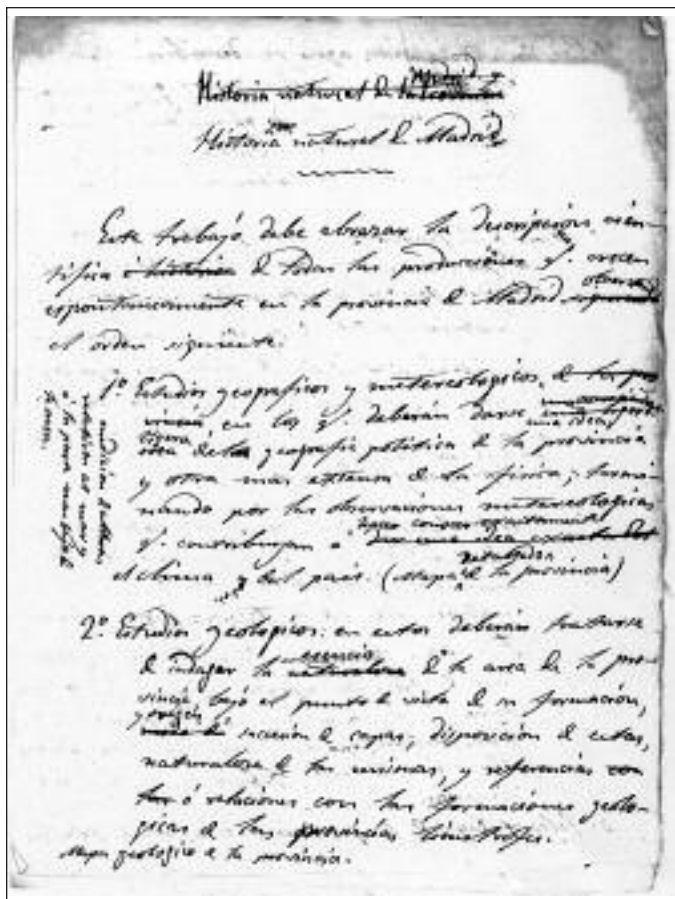 Historia natural de la Provincia
Madrid y
Historia natural d Madrid
Este trabajo debe abrazar la descripcion cien-
tifica ó historica d todas las producciones q.e crecen
espontaneamente en la provincia d Madrid
el orden siguiente:
1º Estudios geograficos y metereologicos, d la pro
vincia en los q.e deberán darse una idea
ligera idea de la geografia politica d la provincia
y otra mas extensa d la fisica; termi-
nando por las observaciones metereologicas
hacer conocer exactamente
q.e contribuyan a dar una idea
el clima y del pais. (Mapa d la provincia)
2º Estudios geologicos: en estos deberán tratarse
esencia
d indagar la naturaleza d la area de la pro-
vincia bajo el punto d vista d su formación,
y origen
d capas, disposicion d estas,
naturaleza d las mismas, y referencias con
las ó relaciones con las formaciones geolo-
gicas d las provincias limitrofes.
Mapa geologico d la provincia.